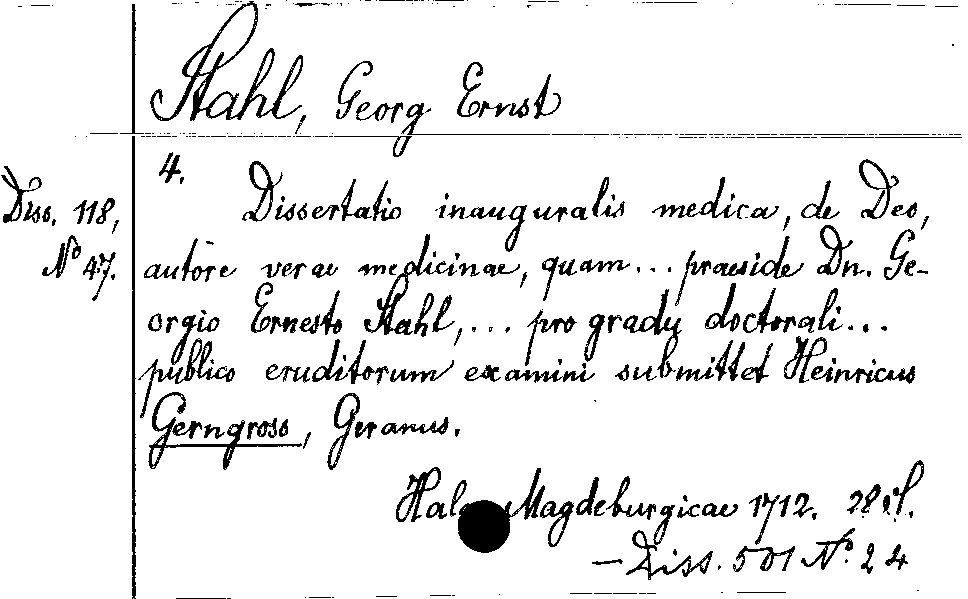 Stahl, Georg Ernst
4.
Diss. 118,
Nº 47.
Dissertatio inauguralis medica, de Deo,
autōre verae medicinae, quam... praeside Dn. Ge-
orgio Ernesto Stahl,... pro gradu doctorali...
publico eruditorum examini submittet Heinricus
Gerngross, Geranus.
Halae Magdeburgicae 1712. 28 S.
— Diss. 501 Nº. 24